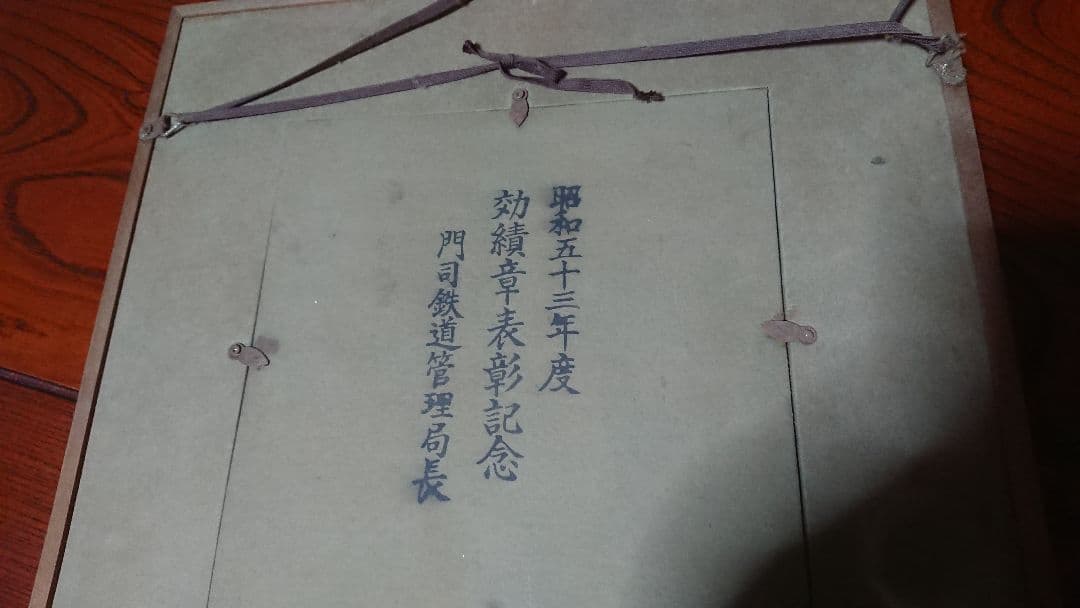 昭和五十三年度
効績章表彰記念
門司鉄道管理局長